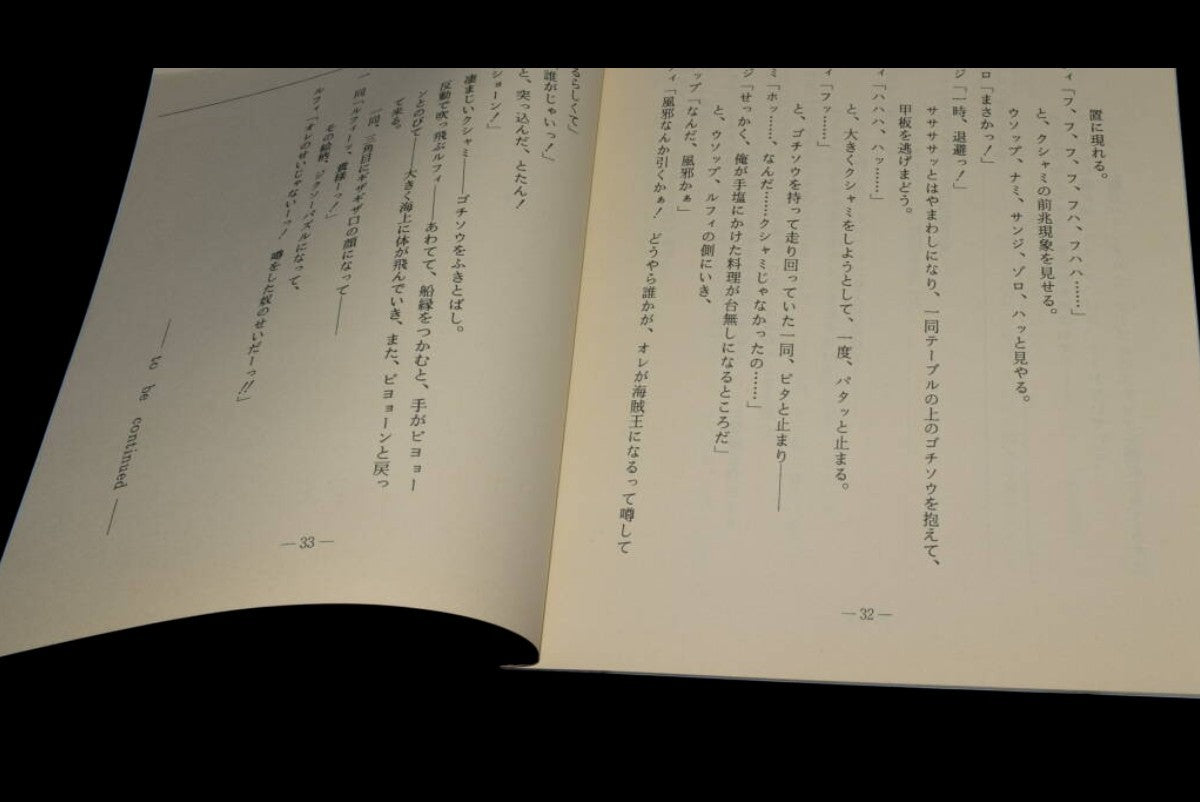 置に現れる。
ィ「フ、フ、フ、フハ、フハハ……」
と、クシャミの前兆現象を見せる。
ウソップ、ナミ、サンジ、ゾロ、ハッと見やる。
ロ「まさかっ！」
ジ「一時、退避っ！」
ササササッとはやまわしになり、一同テーブルの上のゴチソウを抱えて、
甲板を逃げまどう。
ィ「ハハハ、ハッ……」
と、大きくクシャミをしようとして、一度、パタッと止まる。
ィ「フッ……」
と、ゴチソウを持って走り回っていた一同、ピタと止まり――
ミ「ホッ……、なんだ……クシャミじゃなかったの……」
ジ「せっかく、俺が手塩にかけた料理が台無しになるところだ」
と、ウソップ、ルフィの側にいき、
ップ「なんだ、風邪かぁ」
ィ「風邪なんか引くかぁ！　どうやら誰かが、オレが海賊王になるって噂して
―32―
るらしくて」
「誰がじゃいっ！」
と、突っ込んだ、とたん！
ショーン！」
凄まじいクシャミ――ゴチソウをふきとばし。
反動で吹っ飛ぶルフィ――あわてて、船縁をつかむと、手がピョョー
ンとのびて――大きく海上に体が飛んでいき、また、ピョョーンと戻っ
て来る。
一同、三角目にギザギザ口の顔になって――
一同「ルフィーッ、貴様ーっ！」
その絵柄、ジグソーパズルになって、
ルフィ「オレのせいじゃないーっ！　噂をした奴のせいだーっ!!」
―― to be continued ――
―33―